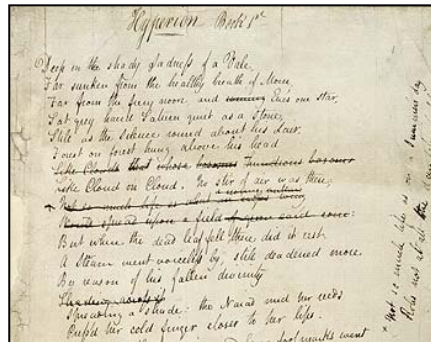 Hyperion Book 1st
Deep in the shady sadness of a Vale,
Far sunken from the healthy breath of Morn,
Far from the fiery noon, and Eve's one star,
Sat grey hair'd Saturn quiet as a stone,
Still as the silence round about his Lair.
Forest on forest hung above his head
Like Clouds that whose bosoms
Like Cloud on Cloud. No stir of air was there,
Not so much life as what an
Would spread upon a field of green
But where the dead leaf fell there did it rest.
A Stream went voiceless by, still deadened more
By reason of his fallen divinity
Spreading a shade: the Naiad mid her reeds
Press'd her cold finger closer to her lips.
footmarks went
Not so much life as on a summer's day
Robs not at all the